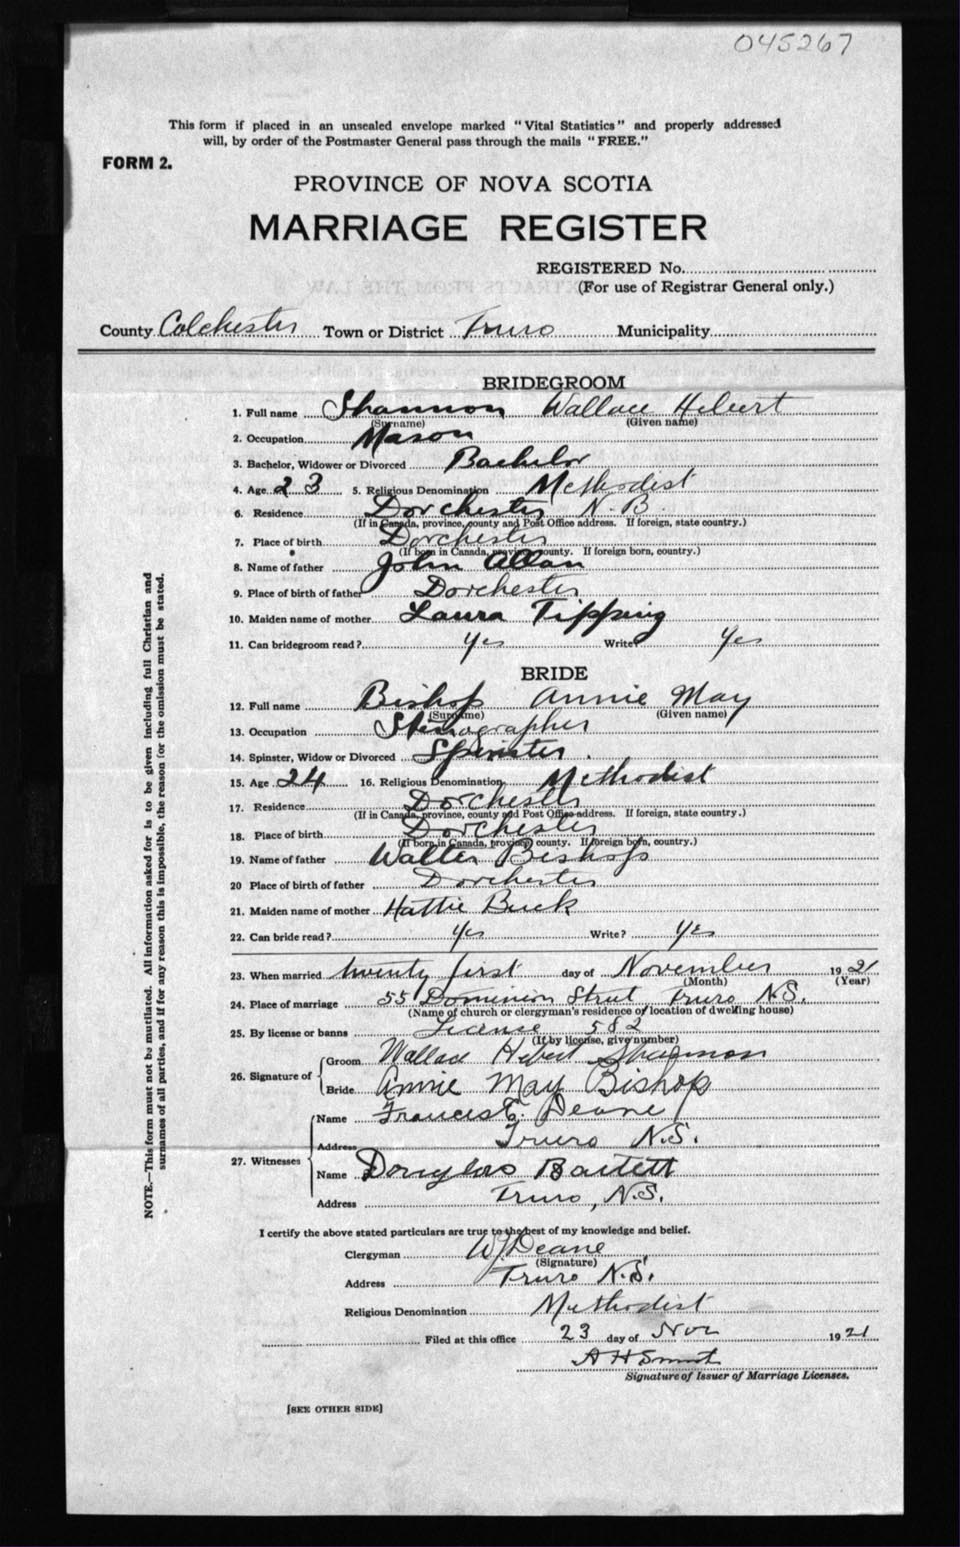 045267
This form if placed in an unsealed envelope marked "Vital Statistics" and properly addressed
will, by order of the Postmaster General pass through the mails "FREE."
FORM 2.
PROVINCE OF NOVA SCOTIA
MARRIAGE REGISTER
REGISTERED No.
(For use of Registrar General only.)
County Colchester Town or District Truro Municipality
BRIDEGROOM
1. Full name Shannon Wallace Hebert
(Surname) (Given name)
2. Occupation Mason
3. Bachelor, Widower or Divorced Bachelor
4. Age 23 5. Religious Denomination Methodist
6. Residence Dorchester N.B.
(If in Canada, province, county and Post Office address. If foreign, state country.)
7. Place of birth Dorchester
(If born in Canada, province, county. If foreign born, country.)
8. Name of father John Allan
9. Place of birth of father Dorchester
10. Maiden name of mother Laura Tipping
11. Can bridegroom read? Yes Write? Yes
BRIDE
12. Full name Bishop Annie May
(Surname) (Given name)
13. Occupation Stenographer
14. Spinster, Widow or Divorced Spinster
15. Age 24 16. Religious Denomination Methodist
17. Residence Dorchester
(If in Canada, province, county and Post Office address. If foreign, state country.)
18. Place of birth Dorchester
(If born in Canada, province, county. If foreign born, country.)
19. Name of father Walter Bishop
20 Place of birth of father Dorchester
21. Maiden name of mother Hattie Buck
22. Can bride read? Yes Write? Yes
23. When married twenty first day of November 1921
(Month) (Year)
24. Place of marriage 55 Dominion Street Truro N.S.
(Name of church or clergyman's residence or location of dwelling house)
25. By license or banns License 582
(If by license, give number)
26. Signature of Groom Wallace Hebert Shannon
Bride Annie May Bishop
27. Witnesses Name Frances E. Deane
Address Truro N.S.
Name Douglas Bartlett
Address Truro, N.S.
I certify the above stated particulars are true to the best of my knowledge and belief.
Clergyman WJ Deane
(Signature)
Address Truro N.S.
Religious Denomination Methodist
Filed at this office 23 day of Nov 1921
A H Smith
Signature of Issuer of Marriage Licenses.
[SEE OTHER SIDE]
NOTE.—This form must not be mutilated. All information asked for is to be given including full Christian and
surnames of all parties, and if for any reason this is impossible, the reason for the omission must be stated.